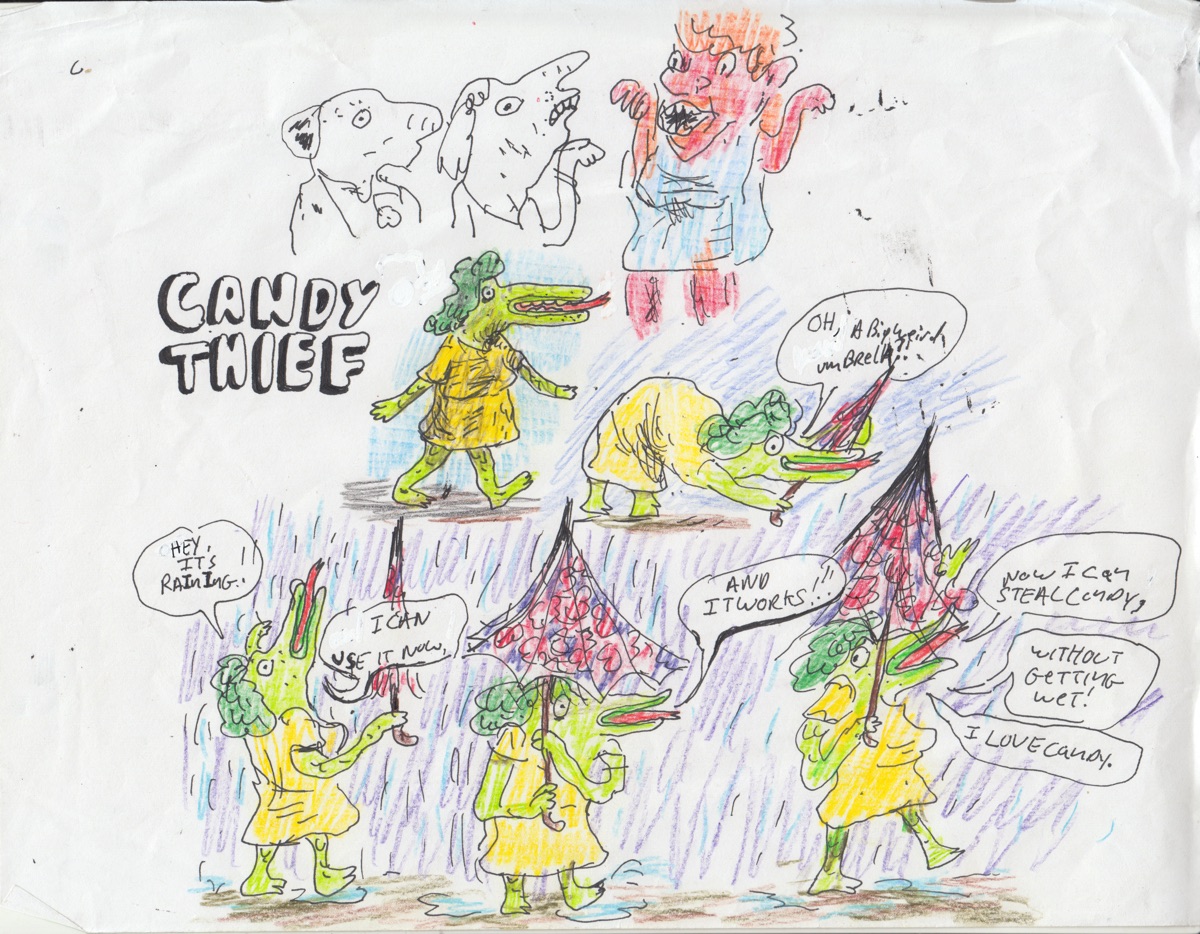 CANDY
THIEF
OH, A Big weird
umBRella!!
HEY,
ITS
RAINING!!
I CAN
USE IT NOW,
AND
IT WORKS!!
NOW I CAN
STEAL CANDY,
WITHOUT
GETTING
WET!
I LOVE CANDY.